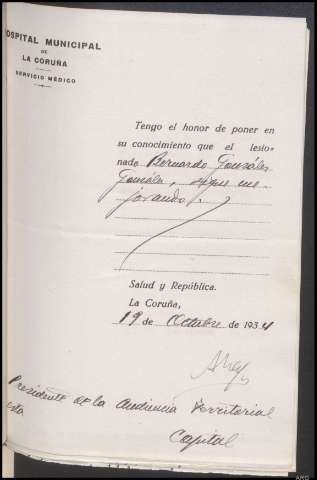 OSPITAL MUNICIPAL
DE
LA CORUÑA
SERVICIO MÉDICO
Tengo el honor de poner en
su conocimiento que el lesio-
nado Bernardo González
González, sigue me
jorando.
Salud y República.
La Coruña,
19 de Octubre de 1934
Presidente de la Audiencia Territorial
Capital
ARG